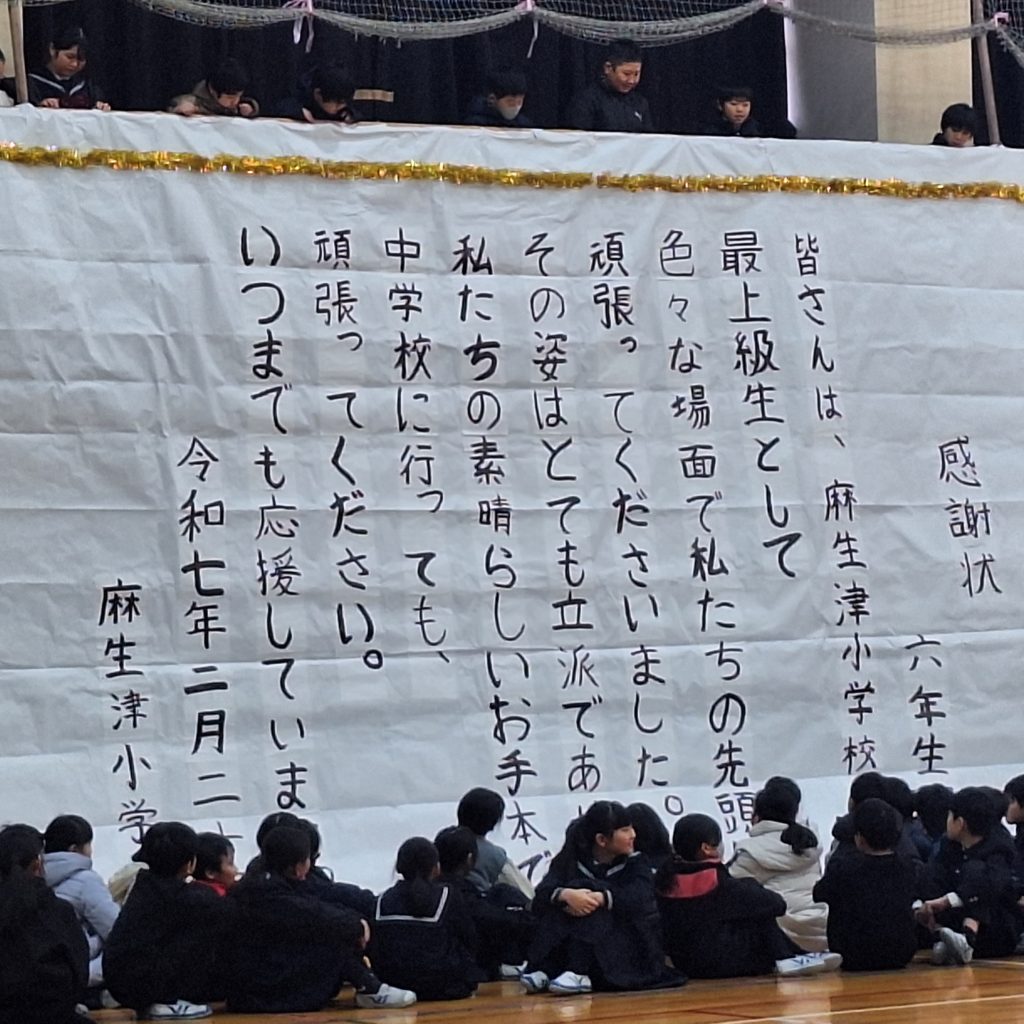 感謝状
六年生
皆さんは、麻生津小学校
最上級生として
色々な場面で私たちの先頭
頑張ってくださいました。
その姿はとても立派であ
私たちの素晴らしいお手本で
中学校に行っても、
頑張ってください。
いつまでも応援していま
令和七年二月二
麻生津小学